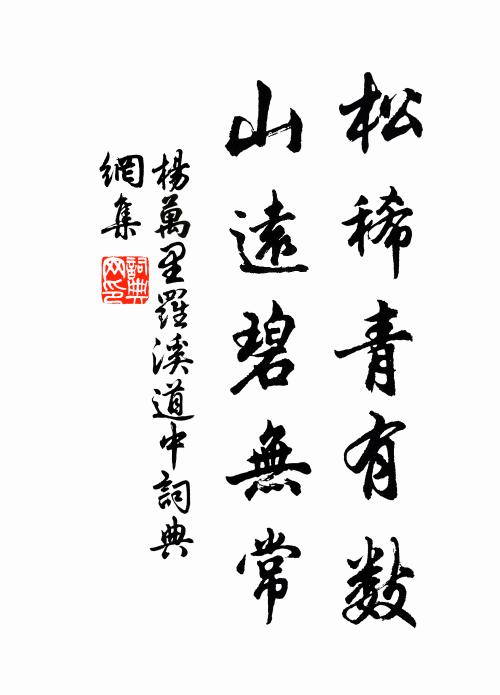 松稀青有數
山遠碧無常
楊萬里羅溪道中詞典
網集
詞典
網印